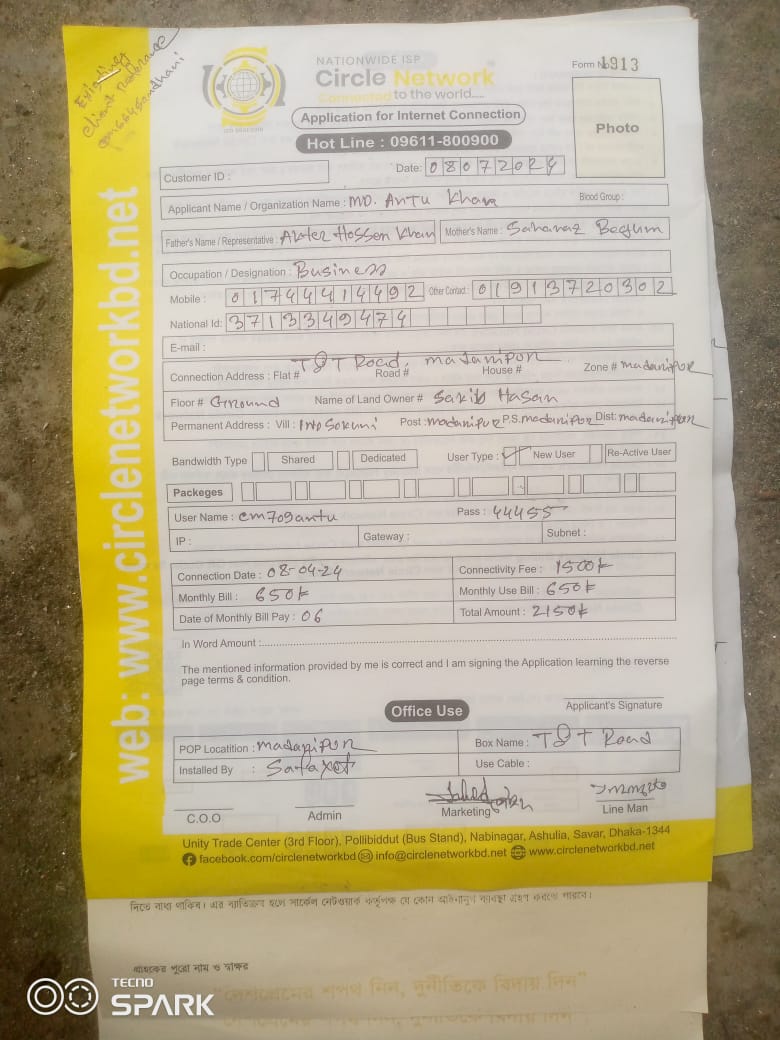 Existing
Client Reference
cm664sandhani
NATIONWIDE ISP
Circle Network
Connected to the world....
Form No 1913
Application for Internet Connection
Hot Line : 09611-800900
Photo
Customer ID :
Date: 08072024
Applicant Name / Organization Name : MD. Antu Khan Blood Group :
Father's Name / Representative : Akter Hossen Khan Mother's Name : Sahanaz Begum
Occupation / Designation : Business
Mobile : 01744414492 Other Contact : 01913720302
National Id: 3713349474
E-mail :
T&T Road, madaripur
Connection Address : Flat # Road # House # Zone # madaripur
Floor # Ground Name of Land Owner # Sakib Hasan
Permanent Address : Vill : Post : madaripur P.S. madaripur Dist: madaripur
Bandwidth Type Shared Dedicated User Type : ✓ New User Re-Active User
Packeges
User Name : cm709antu Pass : 44455
IP : Gateway : Subnet :
Connection Date : 08-04-24 Connectivity Fee : 1500k
Monthly Bill : 650k Monthly Use Bill : 650k
Date of Monthly Bill Pay : 06 Total Amount : 2150k
In Word Amount :
The mentioned information provided by me is correct and I am signing the Application learning the reverse
page terms & condition.
Applicant's Signature
Office Use
POP Locatition : madaripur Box Name : T&T Road
Installed By : Use Cable :
C.O.O Admin Marketing Line Man
Unity Trade Center (3rd Floor), Pollibiddut (Bus Stand), Nabinagar, Ashulia, Savar, Dhaka-1344
facebook.com/circlenetworkbd info@circlenetworkbd.net www.circlenetworkbd.net
web: www.circlenetworkbd.net
দিতে বাধ্য থাকিব। এর ব্যতিক্রম হলে সার্কেল নেটওয়ার্ক কর্তৃপক্ষ যে কোন আইনানুগ ব্যবস্থা গ্রহণ করতে পারবে।
গ্রাহকের পুরো নাম ও স্বাক্ষর
"দেশপ্রেমের শপথ নিন, দুর্নীতিকে বিদায় দিন"
TECNO
SPARK